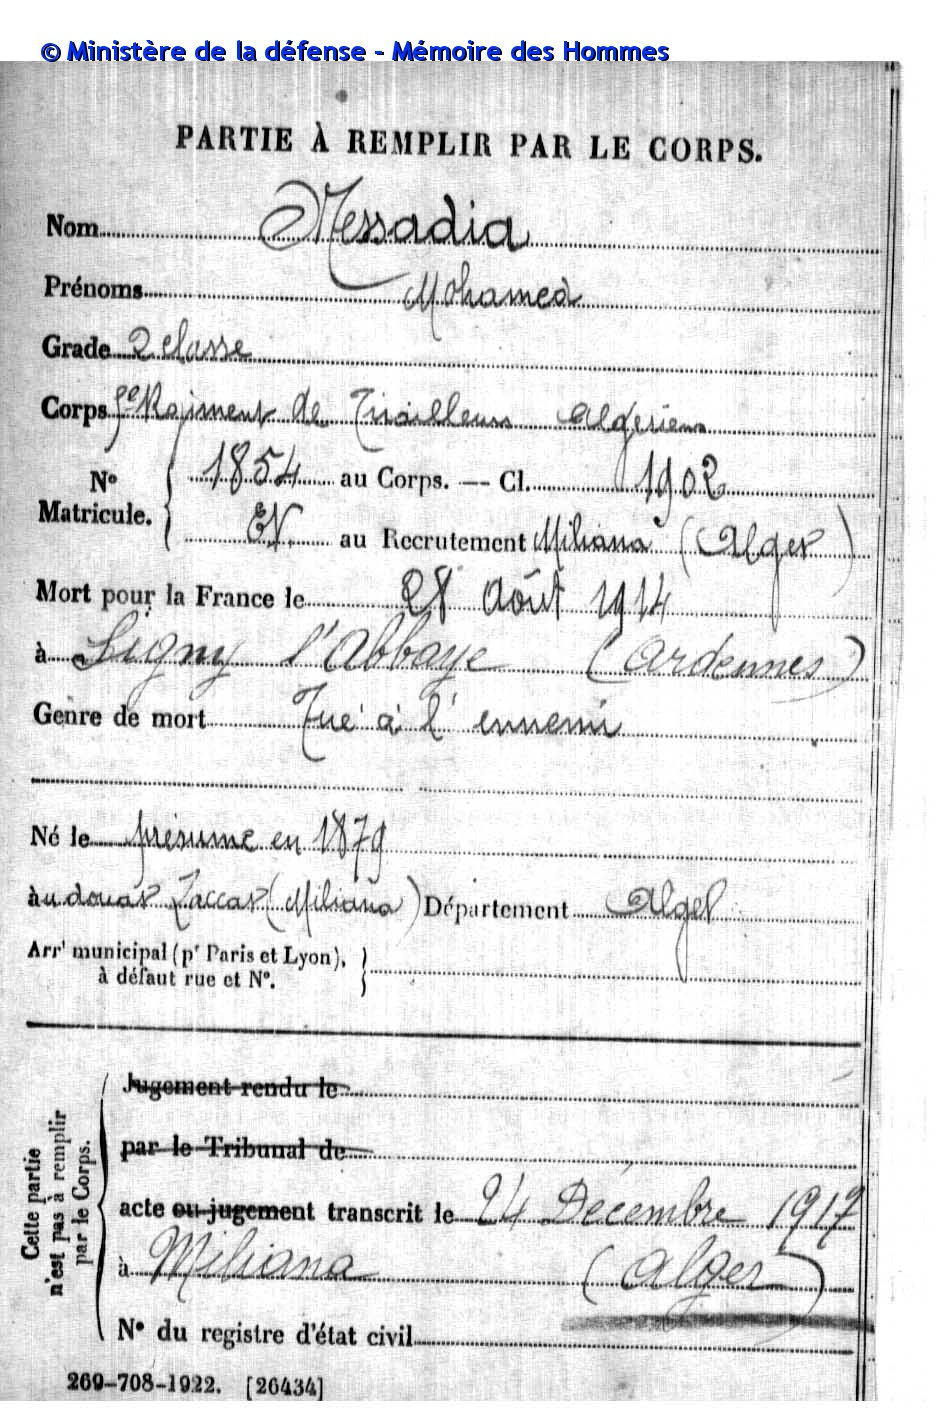 © Ministère de la défense - Mémoire des Hommes
PARTIE À REMPLIR PAR LE CORPS.
Nom Messadia
Prénoms Mohamed
Grade 2 classe
Corps Régiment de Tirailleurs Algériens
N° 1854 au Corps. — Cl. 1902
Matricule. EV. au Recrutement Miliana (Alger)
Mort pour la France le 28 Août 1914
à Signy l'Abbaye (Ardennes)
Genre de mort Tué à l'ennemi
Né le présumé en 1879
au douar Zaccar (Miliana) Département Alger
Arrt municipal (pr Paris et Lyon),
à défaut rue et N°.
Jugement rendu le
par le Tribunal de
acte ou jugement transcrit le 24 Décembre 1917
à Miliana (Alger)
N° du registre d'état civil
Cette partie
n'est pas à remplir
par le Corps.
269-708-1922. [26434]